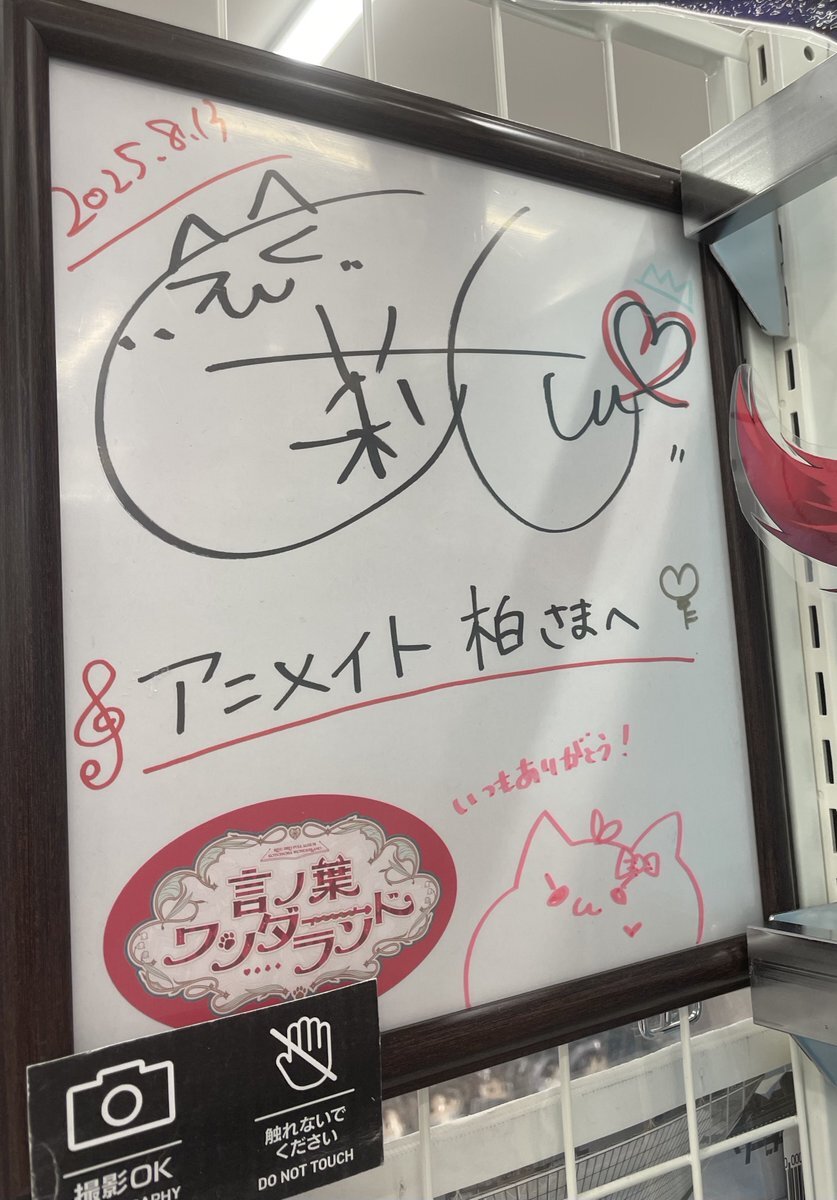 2025.8.13
アニメイト 柏さまへ
いつもありがとう!
言ノ葉
ワンダーランド
撮影OK
触れないで
ください
DO NOT TOUCH